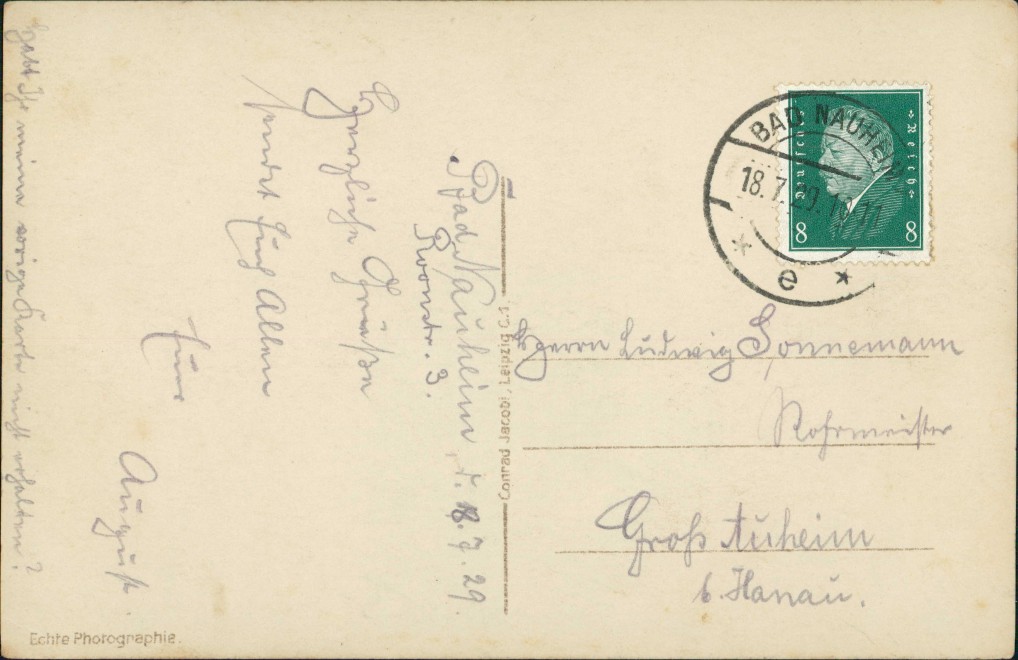 Bad Nauheim, d. 18.7.29.
Roonstr. 3.
Herzliche Grüße
sendet Euch Allen
Euer
August.
Habt Ihr meine vorige Karte nicht erhalten?
Echte Photographie.
Conrad Jacobi, Leipzig C.1.
BAD NAUHEIM
18.7.29.
* e *
Deutsches Reich
8 8
Herrn Ludwig Sonnemann
Rohrmeister
Groß Auheim
b. Hanau.